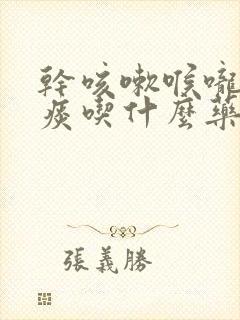 幹咳嗽喉嚨
痰喫什麼藥
張義勝